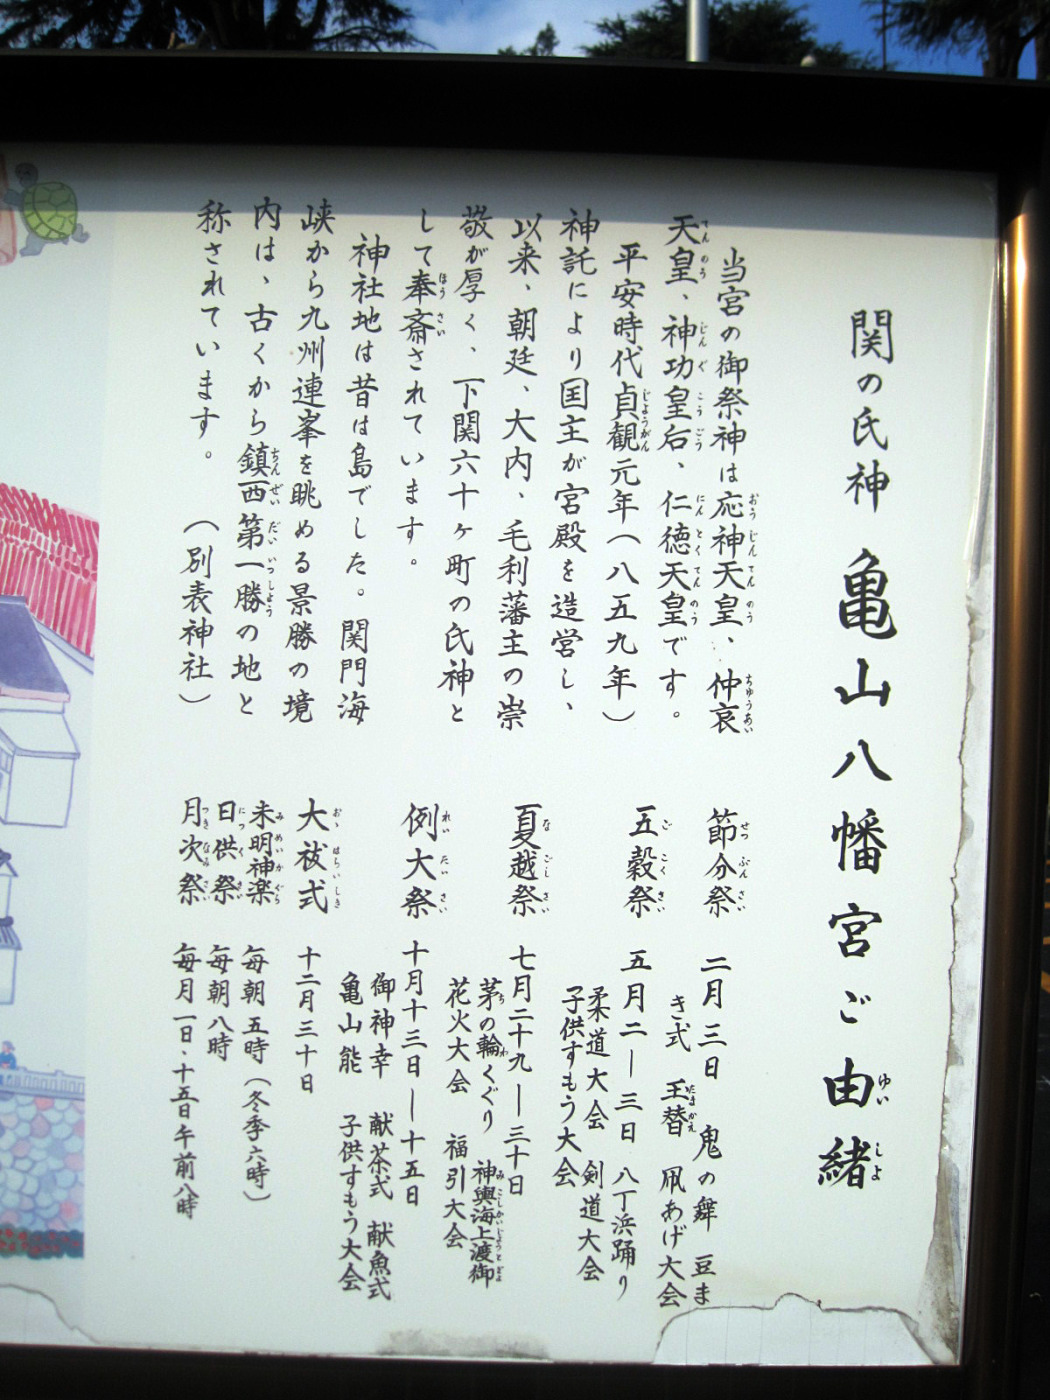 関の氏神 亀山八幡宮ご由緒
当宮の御祭神は応神天皇、仲哀
天皇、神功皇后、仁徳天皇です。
平安時代貞観元年(八五九年)
神託により国主が宮殿を造営し、
以来、朝廷、大内、毛利藩主の崇
敬が厚く、下関六十ヶ町の氏神と
して奉斎されています。
神社地は昔は島でした。関門海
峡から九州連峯を眺める景勝の境
内は、古くから鎮西第一勝の地と
称されています。 (別表神社)
節分祭 二月三日 鬼の舞 豆ま
き式 玉替 凧あげ大会
五穀祭 五月二―三日 八丁浜踊り
柔道大会 剣道大会
子供すもう大会
夏越祭 七月二十九―三十日
茅の輪くぐり 神輿海上渡御
花火大会 福引大会
例大祭 十月十三日―十五日
御神幸 献茶式 献魚式
亀山能 子供すもう大会
大祓式 十二月三十日
未明神楽 毎朝五時(冬季六時)
日供祭 毎朝八時
月次祭 毎月一日、十五日午前八時